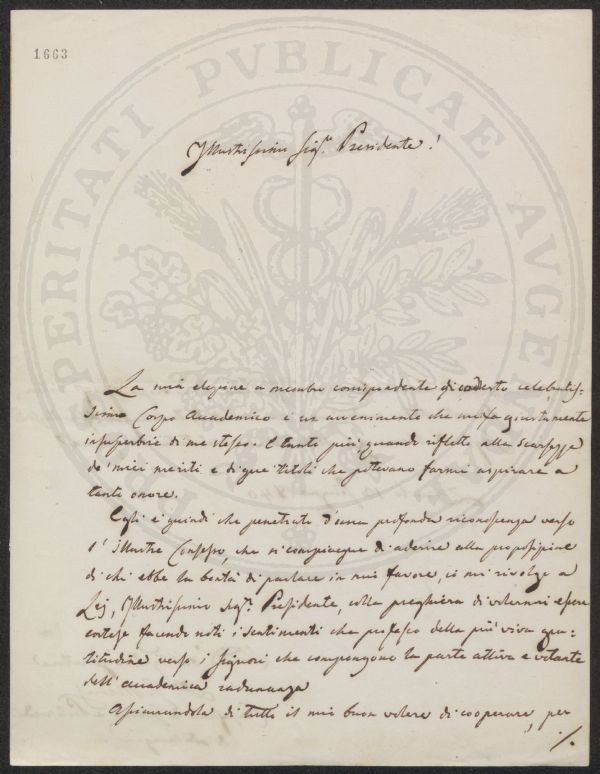 1663
PROSPERITATI PVBLICAE AVGENDAE
Illustrissimo Sigr. Presidente!
La mia elezione a membro corrispondente di codesto celebratis-
simo Corpo Accademico è un avvenimento che mi fa giustamente
insuperbire di me stesso. E tanto più quando rifletto alla scarsezza
de' miei meriti e di que' titoli che potevano farmi aspirare a
tanto onore.
Egli è quindi che penetrato d'una profonda riconoscenza verso
l'illustre Consesso, che si compiacque di aderire alla proposizione
di chi ebbe la bontà di parlare in mio favore, io mi rivolgo a
Lej, Illustrissimo Sigr. Presidente, colla preghiera di volermi essere
cortese facendo noti i sentimenti che professo della più viva gra-
titudine verso i Signori che compongono la parte attiva e votante
dell'Accademica radunanza
Assicurandola di tutto il mio buon volere di cooperare, per
./.